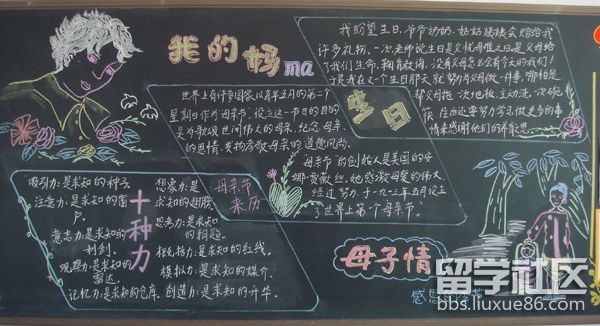 我的妈ma
世界上有许多国家以每年五月的第二个
星期日作为母亲节。设立这一节日的目的
是为歌颂世间伟大的母亲,纪念母亲
的恩情,发扬孝敬母亲的道德风尚。
母亲节的创始人是美国的安
娜·贾薇丝,她感激母爱的伟大,
经过努力,于一九一三年五月设立
了世界上第一个母亲节。
母亲节
来历
生日
我盼望生日,爷爷奶奶、姑姑姨姨会赠给我
许多礼物。一次老师说生日是父忧母难之日是父母给
了我们生命,鞠育教诲,没有父母怎么会有今天的我们!
于是我在又一个生日那天就努力为父母做一件事,哪怕是
帮父母拖一次地板,主动洗一次碗
筷,在后还要努力学习,做更多的事
情来感谢他们的养教恩。
十种力
吸引力:是求知的种子。
注意力:是求知的窗
户。
意志力:是求知的
利剑。
观察力:是求知的
雷达。
记忆力:是求知的仓库。
想象力:是
求知的翅膀。
思考力:是求知
的钥匙。
概括力:是求知的红线。
模拟力:是求知的媒介。
创造力:是求知的升华。
母子情
感恩
留学社区
bbs.liuxue86.com